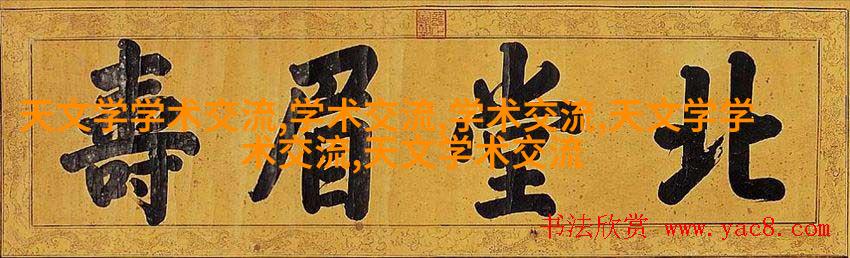 北堂眉壽
天文学学术交流,学术交流,学术交流,天文学学
术交流,天文学术交流
书法欣赏 www.yac8.com